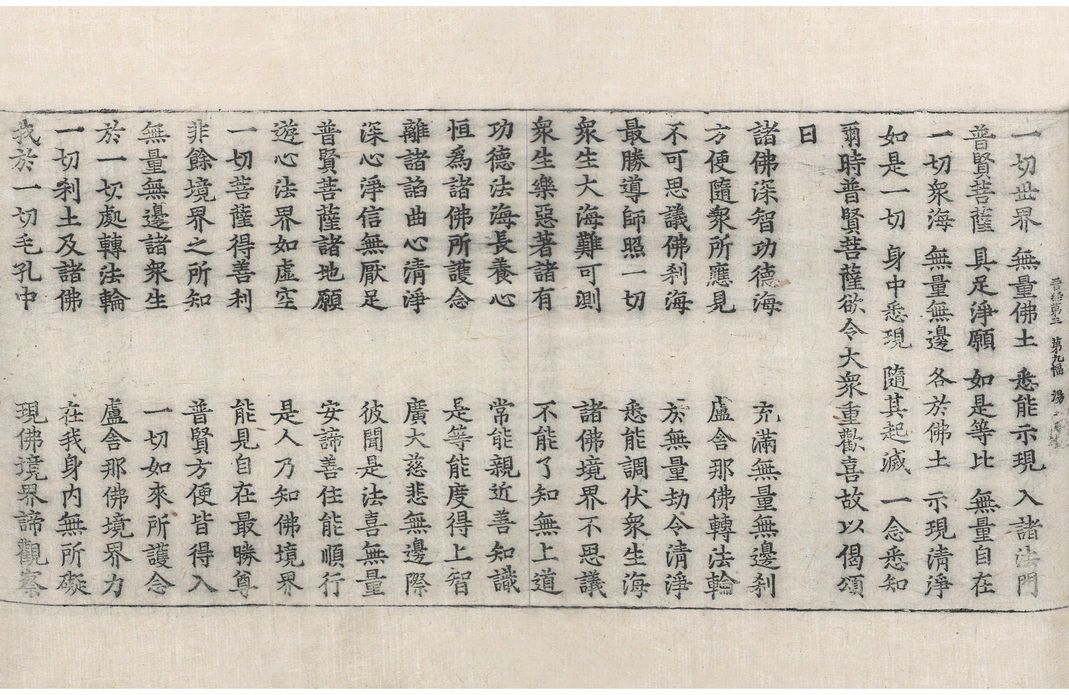 一切世界 無量佛土 悉能示現 入諸法門
普賢菩薩 具足淨願 如是等比 無量自在
一切衆海 無量無邊 各於佛土 示現清淨
如是一切 身中悉現 隨其起滅 一念悉知
爾時普賢菩薩欲令大衆重歡喜故以偈頌
曰
諸佛深智功德海 充滿無量無邊刹
方便隨衆所應見 盧舍那佛轉法輪
不可思議佛刹海 於無量劫令清淨
最勝導師照一切 悉能調伏衆生海
衆生大海難可測 諸佛境界不思議
衆生樂惡著諸有 不能了知無上道
功德法海長養心 常能親近善知識
恒爲諸佛所護念 是等能度得上智
離諸諂曲心清淨 廣大慈悲無邊際
深心淨信無厭足 彼聞是法喜無量
普賢菩薩諸地願 安諦善住能順行
遊心法界如虛空 是人乃知佛境界
一切菩薩得善利 能見自在最勝尊
非餘境界之所知 普賢方便皆得入
無量無邊諸衆生 一切如來所護念
於一切處轉法輪 盧舍那佛境界力
一切刹土及諸佛 在我身内無所礙
我於一切毛孔中 現佛境界諦觀察
第九幅